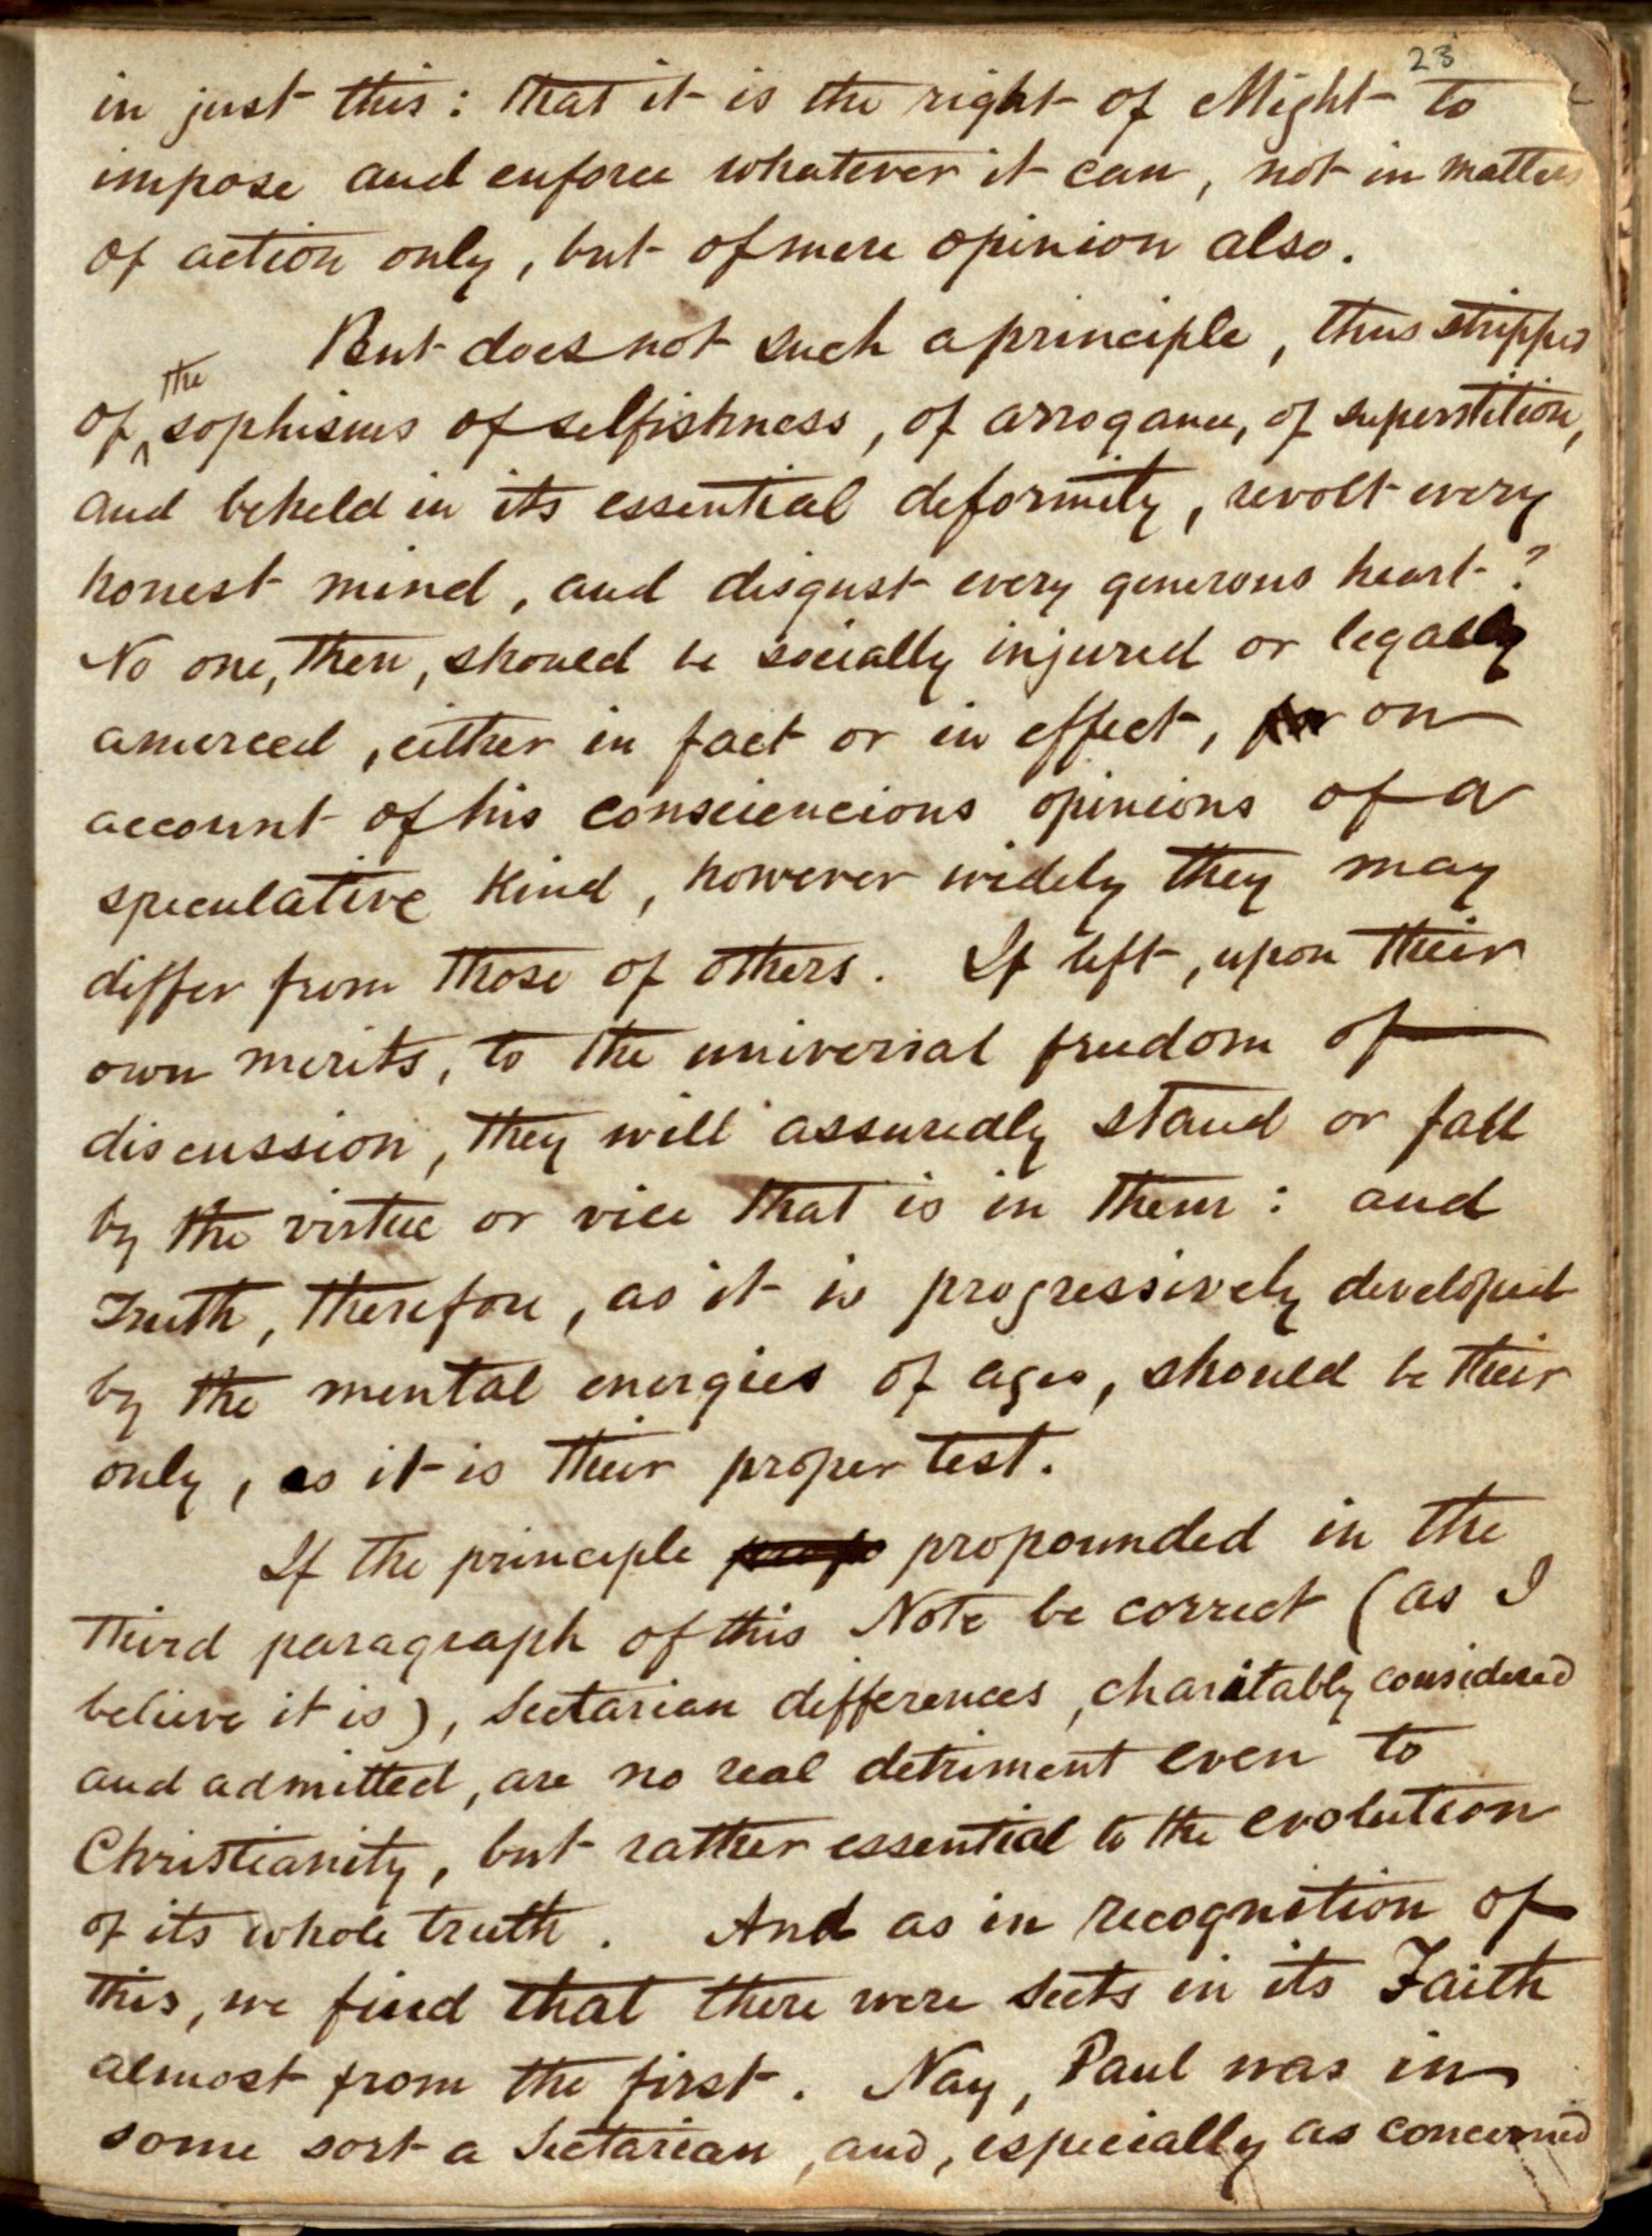 23
in just this: that it is the right of Might to
impose and enforce whatever it can, not in matters
of action only, but of mere opinion also.
But does not such a principle, thus stripped
of the sophisms of selfishness, of arrogance, of superstition,
and beheld in its essential deformity, revolt every
honest mind, and disgust every generous heart?
No one, then, should be socially injured or legally
amerced, either in fact or in effect, for on
account of his consciencious opinions of a
speculative kind, however widely they may
differ from those of others. If left, upon their
own merits, to the universal freedom of
discussion, they will assuredly stand or fall
by the virtue or vice that is in them: and
Truth, therefore, as it is progressively developed
by the mental energies of ages, should be their
only, as it is their proper test.
If the principle propounded in the
third paragraph of this Note be correct (as I
believe it is), sectarian differences, charitably considered
and admitted, are no real detriment even to
Christianity, but rather essential to the evolution
of its whole truth. And as in recognition of
this, we find that there were sects in its Faith
almost from the first. Nay, Paul was in
some sort a sectarian, and, especially as concerned